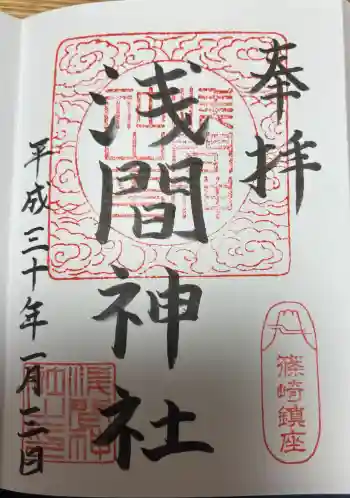 奉拝
篠崎鎮座
浅間神社
平成三十年一月二日